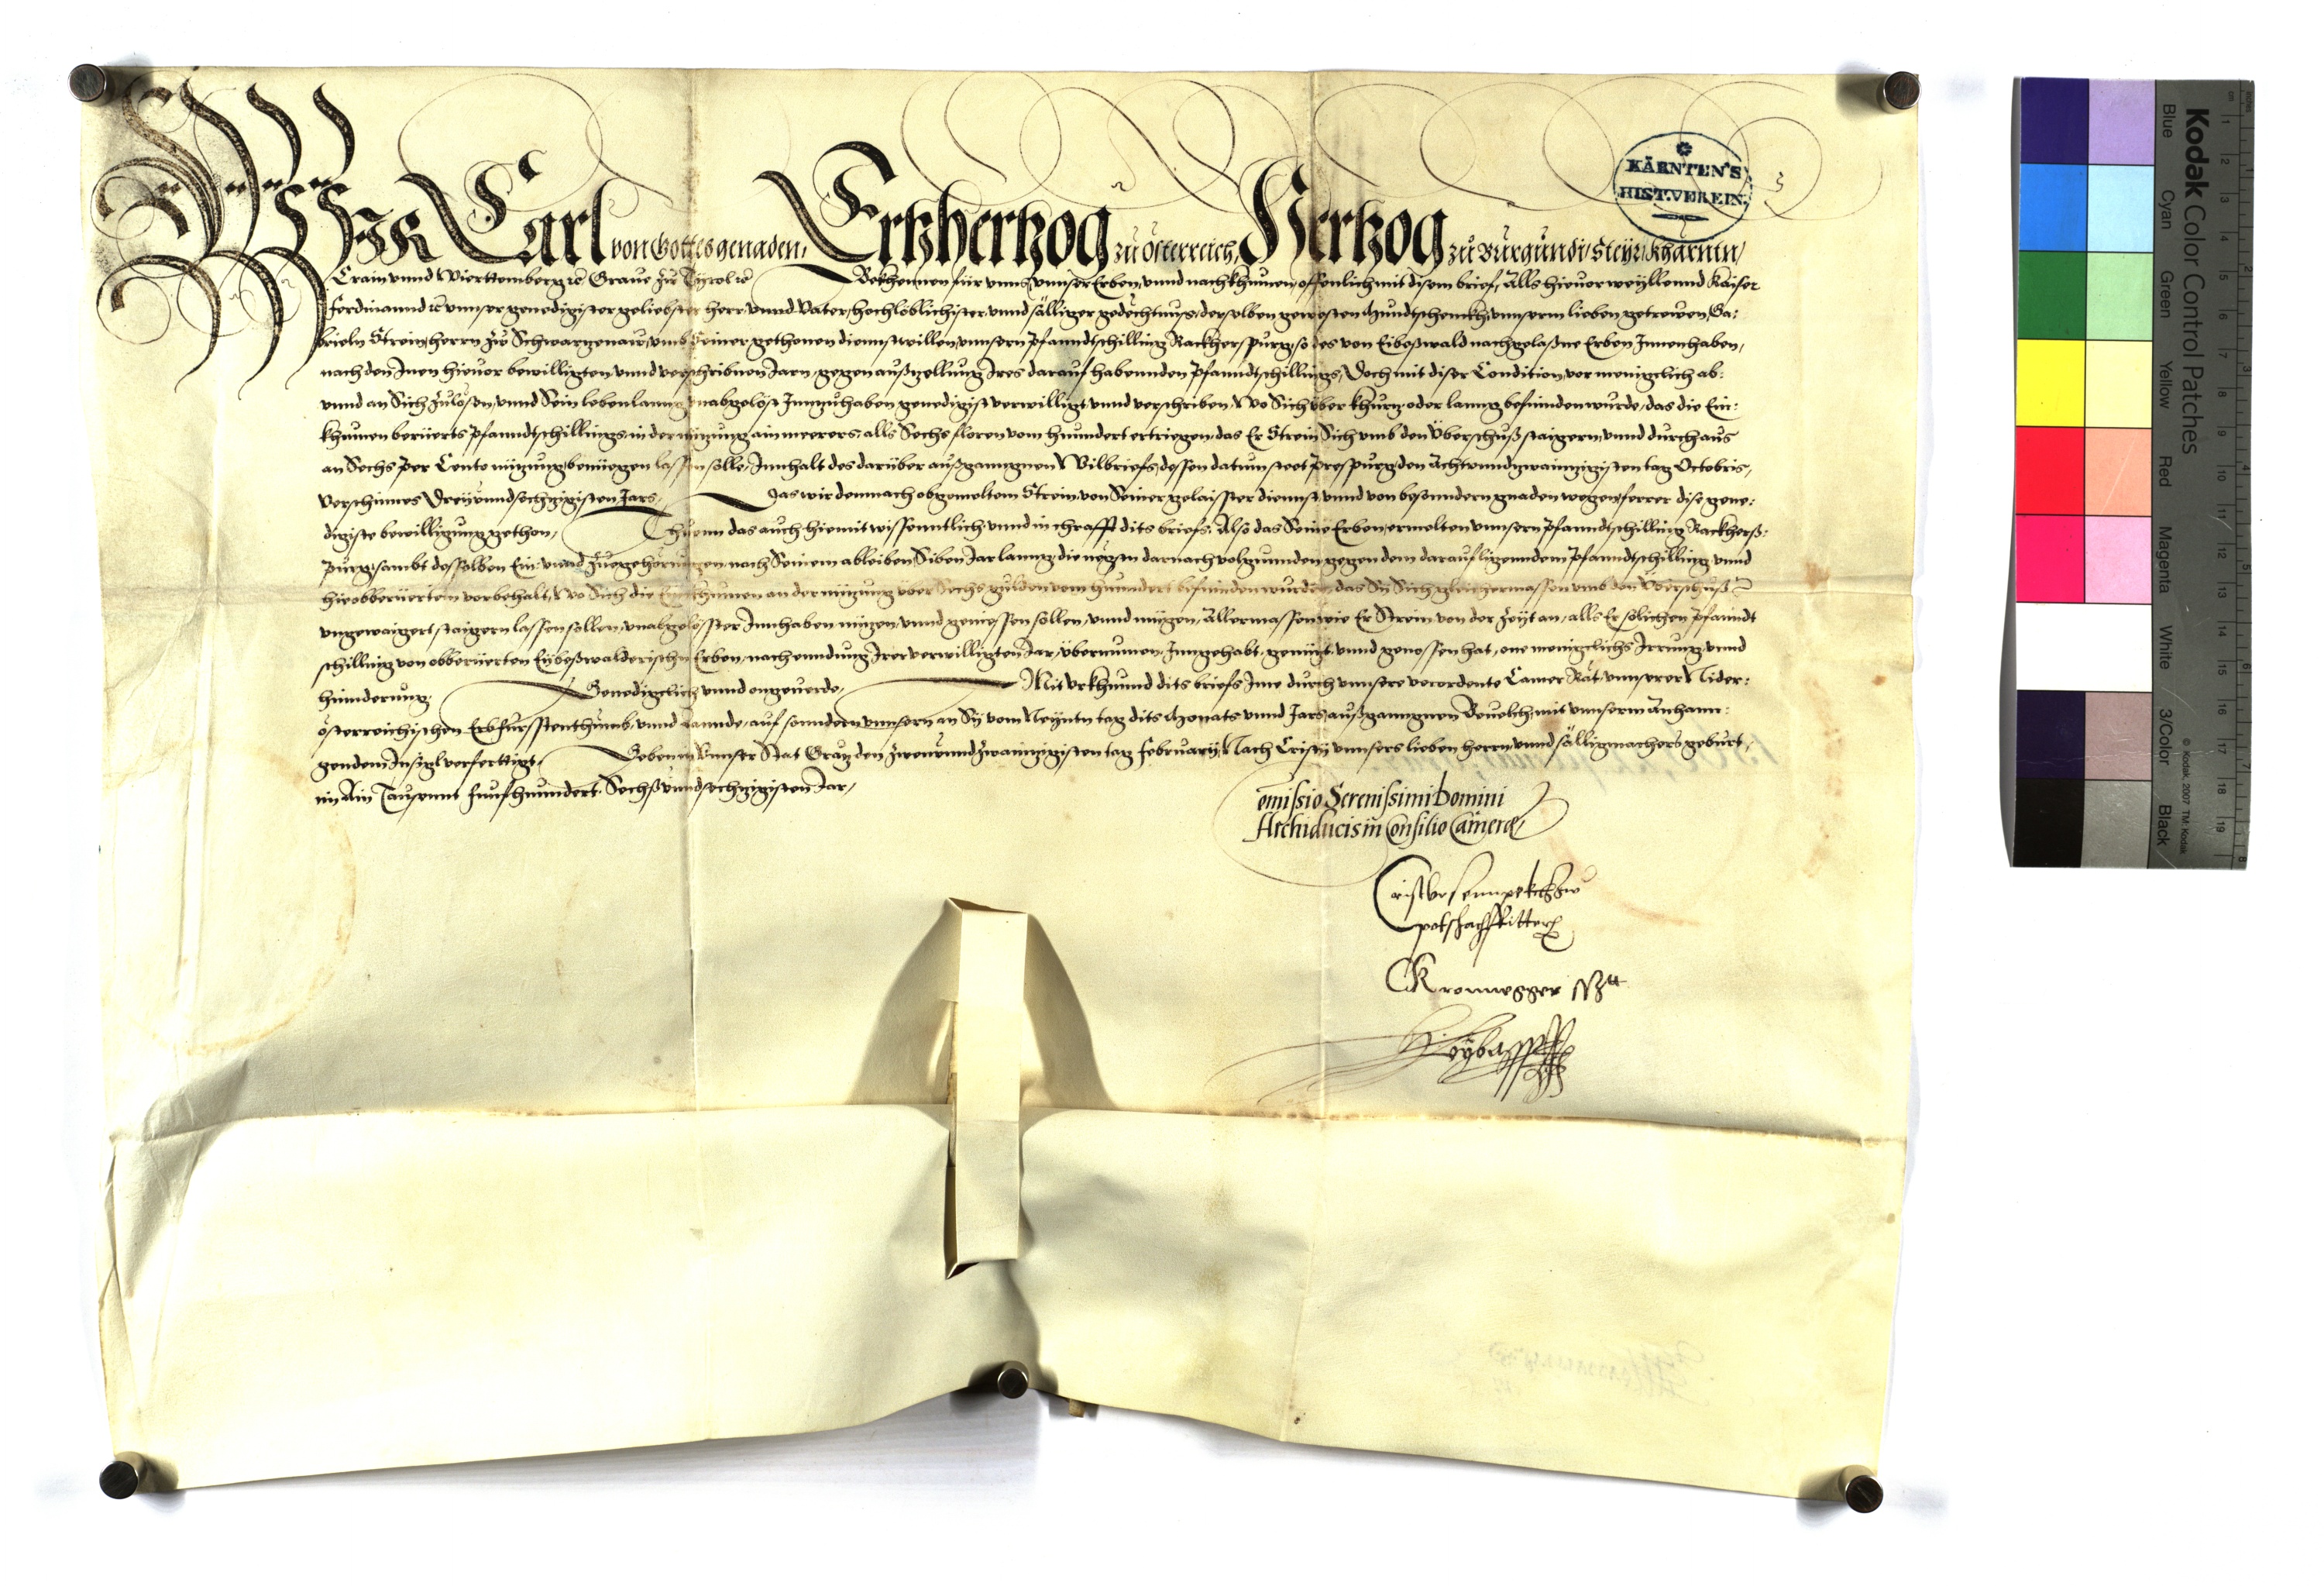 Wir Carl von Gottes genaden, Ertzhertzog zu Österreich, Hertzog zu Burgundi, Steyr, Khärntn,
Crain vnnd Wierttemberg &c Graue zu Tyrol &c Bekhennen für vnns, vnnser Erben, vnnd nachkhumen, offenlich mit disem brief, Alls hieuor weyllennd Kaiser
Ferdinannd &c vnnser genedigister geliebster herr vnnd Vater, hochlöblichister vnnd sälliger gedechtnus, derselben gewesten Mundtschenckh, vnnserm lieben getrewen, Ga:
brieln Strein, herrn zu Schwarzenaw, vmb Seiner gethonen diennst willen, vnnsern Pfanndtschilling Rackherspurg, so des von Eibeßwald nachgelaßne Erben Innenhaben,
nach den Inen hieuor bewilligten vnnd verschribnen Jarn, gegen außzellung Ires darauf habennden Pfanndtschillings, Doch mit diser Condition, vor meniglich ab:
vnnd an Sich zulösen, vnnd Sein lebenlanng vnabgelöst Innzuhaben genedigist verwilligt vnnd verschriben, Wo Sich über khurz oder lanng befinden wurde, das die Ein:
khumen berüerts Pfanndtschillings, in der nuzung ain meerers, alls Sechs floren vom hunndert ertriegen, das Er Strein Sich vmb den Überschuß staigern, vnnd durchaus
an Sechs per Cento nuzung, benüegen lassen solle, Innhalt des darüber außganngnen Wilbriefs, dessen datum steet Prespurg, den Achtunndzwainzigisten tag Octobris,
Verschines Dreyundsechzigisten Jars, Das wir demnach obgemeltem Strein, von Seiner gelaisster diennst, vnnd von besonndern gnaden wegen, ferrer dise gene:
digiste bewilligung gethon, Thuenn das auch hiemit wissenntlich vnnd in chrafft dits briefs, Also das Seine Erben, ermelten vnnsern Pfanndtschilling Rackherß:
purg, sambt desselben Ein: vnnd Zuegehörungen nach Seinem ableiben, Siben Jar lanng, die negsten darnach volgunnden, gegen dem darauf ligenndem Pfanndtschilling vnnd
hieobberüertem vorbehalt, Wo Sich die Einkhumen an der nuzung über Sechs gulden vom hunndert befinden wurden, das Sy Sich gleichermassen vmb den Überschuß
vngewaigert staigern lassen sollen, vnabgelösster Innhaben nuzen, vnnd geniessen sollen, vnnd mügen, Allermassen wie Er Strein von der Zeyt an, alls Er solichen Pfanndt
schilling von obberüerten Eybeßwalderischn Erben, nach enndung Irer verwilligten Jar, übernumen, Inngehabt, genüzt, vnnd genossen hat, one meniglichs Irrung, vnnd
hinnderung, Genedigclich vnnd ongeuerde, Mit vrkhunnd dits briefs, Ime durch vnnsere verordente Camer Rät, vnnserer Nider:
österreichischen Erbfürsstenthumb, vnnd Lannde, auf sonndern vnnsern an Sy vom Neyntn tag dits Monats vnnd Jars, außganngnen Beuelch, mit vnnserm Anhann:
gendem Insigl verferttigt, Geben in Vnnser Stat Graz, den Zwenundzwainzigisten tag February, Nach Cristj vnnsers lieben herrn vnnd sälligmachers geburt,
im Ain Tausennt Funfhunndert Sechßundsechzigisten Jar,
Comissio Serenissimi Domini
Archiducis in Consilio Camerae
Kronnegger
KÄRNTEN'S
HIST. VEREIN.
Kodak Color Control Patches
Blue Cyan Green Yellow Red Magenta White 3/Color Black
© Kodak, 2007 TM: Kodak
cm 1 2 3 4 5 6 7 8 9 10 11 12 13 14 15 16 17 18 19
inches 1 2 3 4 5 6 7 8